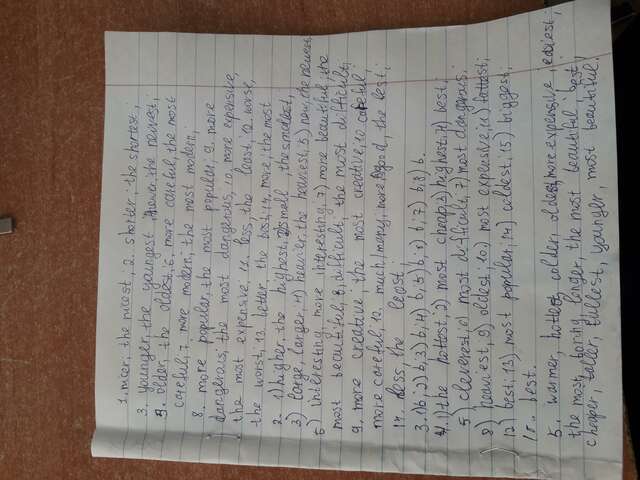 1. nicer, the nicest; 2. shorter, the shortest;
3. younger, the youngest, newer, the newest;
5. older, the oldest; 6. more careful, the most
careful, 7. more modern, the most modern;
8. more popular, the most popular; 9. more
dangerous, the most dangerous, 10. more expensive,
the most expensive, 11. less the least; 12. worse,
the worst, 13. better the best; 14. more, the most
2. 1) higher, the highest, 2) small, the smallest,
3) large, larger, 4) heavier, the heaviest, 5) new, the newest,
6) interesting more interesting, 7) more beautiful, the
most beautiful, 8, difficult, the most difficult,
9. more creative the most creative, 10. careful
more careful, 12. much/many, more, good, the best;
14. less the least,
3. 1) b; 2) b, 3) b, 4) b, 5) b, 6) b, 7) b, 8) b.
4. 1) the hottest, 2) most cheap, 2) highest, 4) best,
5) cleverest, 6) most difficult, 7) most dangerous;
8) heaviest, 9) oldest; 10) most expensive, 11) fattest;
12) best; 13) most popular, 14) coldest; 15) biggest;
best.
5. warmer, hottest, colder, oldest, more expensive, easiest,
the most, longer, the most beautiful, best,
cheaper, taller, fullest, younger, most beautiful,